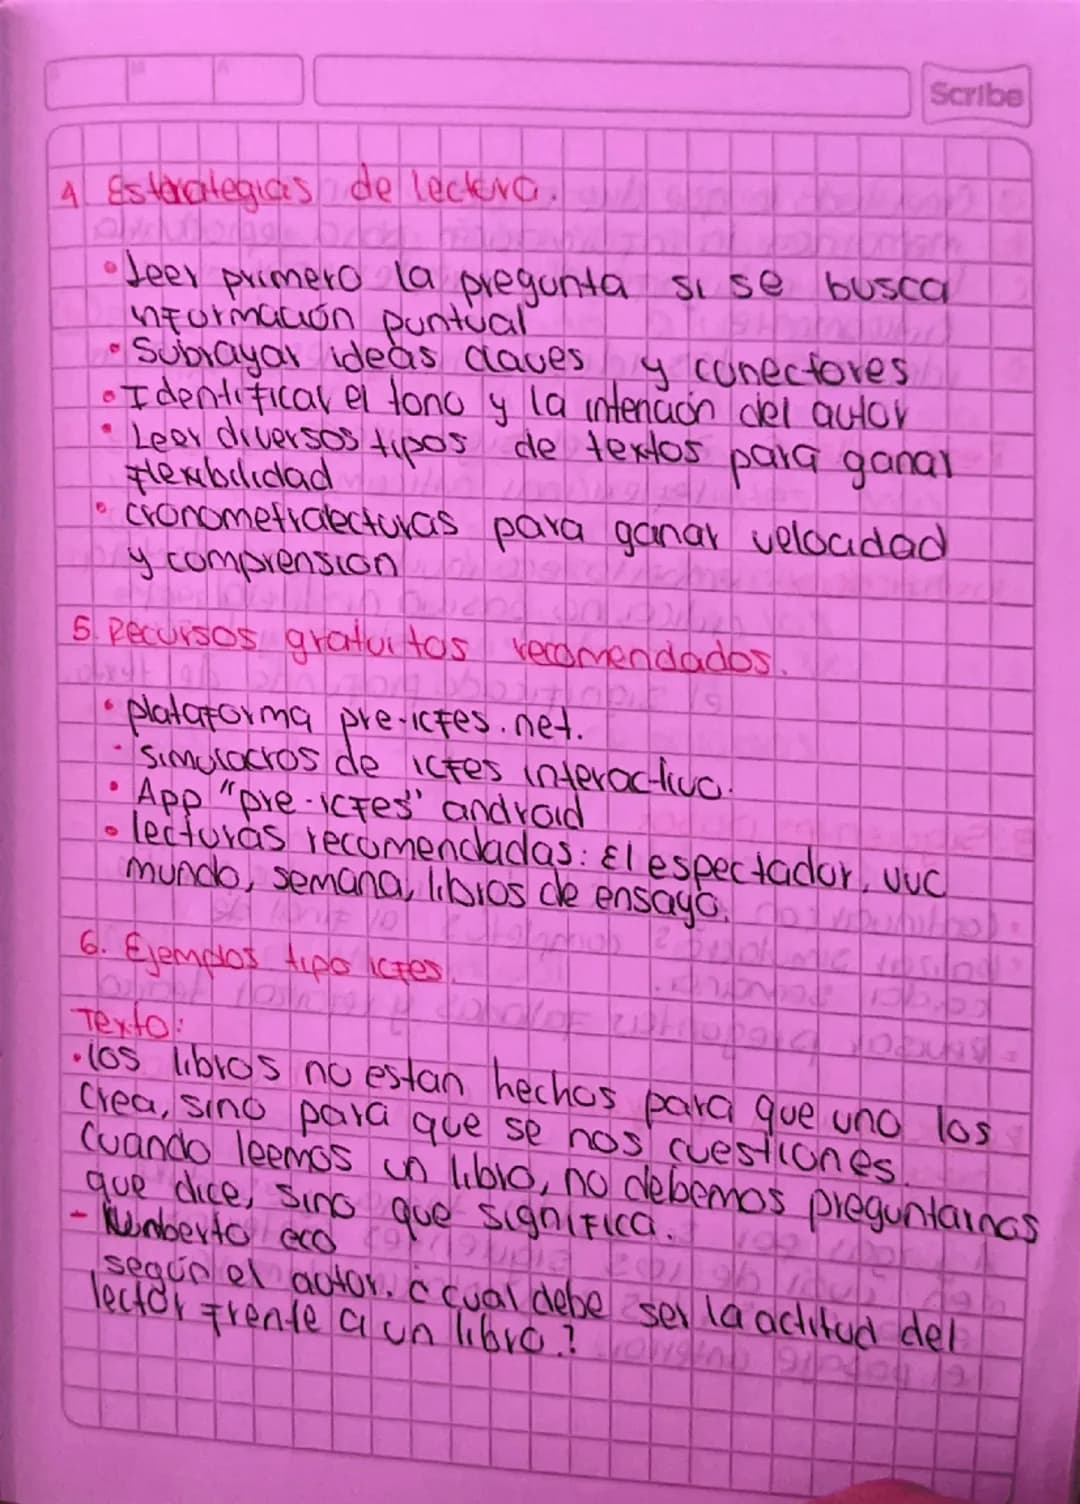 Scribe
4 Estrategias de lectura.
• Leer primero la pregunta si se busca
información puntual
• Subrayar ideas claves y conectores
• Identificar el tono y la intención del autor
• Leer diversos tipos de textos para ganar
flexibilidad
• cronometralecturas para ganar velocidad
y comprension
5. Recursos gratuitos recomendados.
• plataforma pre-icfes.net.
• Simulacros de icfes interactivo.
• App "pre-icfes" android
• lecturas recomendadas: El espectador, vvc
mundo, semana, libros de ensayo.
6. Ejemplos tipo icfes.
Texto:
• los libros no estan hechos para que uno los
crea, sino para que se nos cuestiones.
Cuando leemos un libro, no debemos preguntarnos
que dice, sino que significa.
- eco
según el autor. ¿cual debe ser la actitud del
lector frente a un libro?